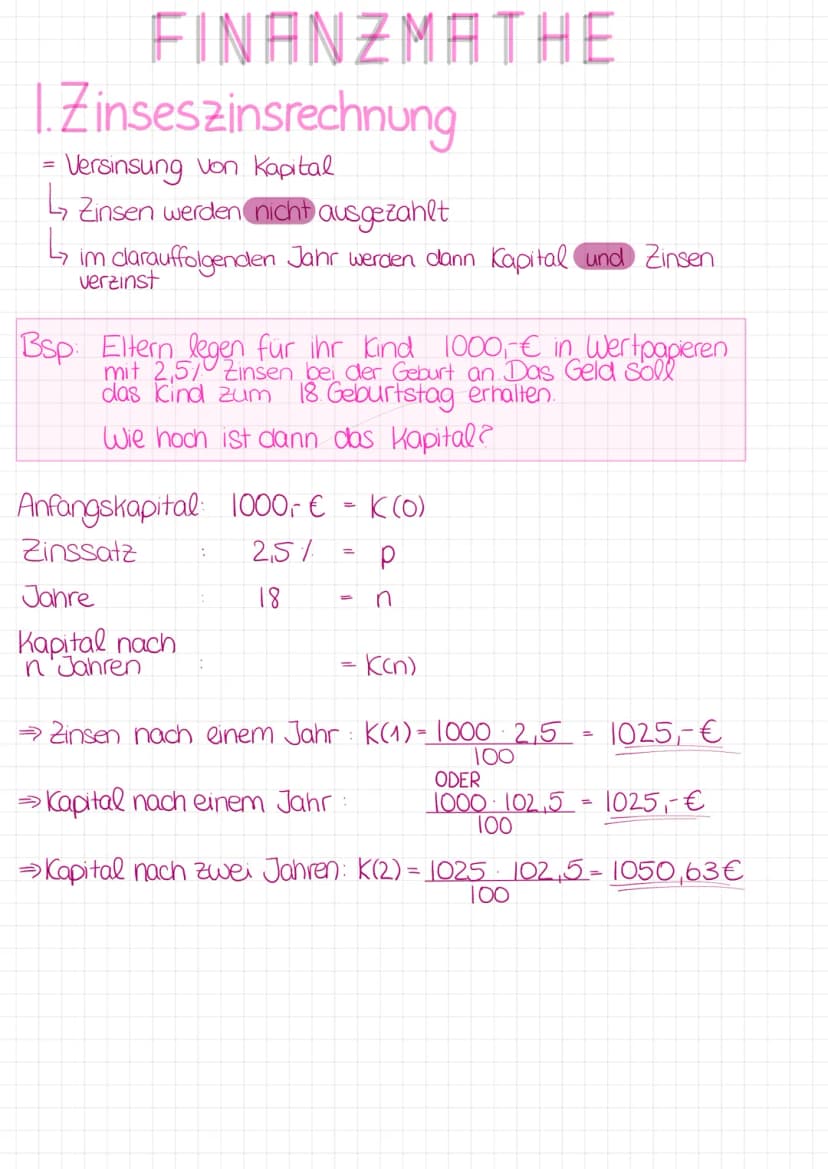 FINANZMATHE
1. Zinseszinsrechnung
= Versinsung von Kapital
↳ Zinsen werden nicht ausgezahlt
↳ im darauffolgenden Jahr werden dann Kapital und Zinsen
verzinst
Bsp: Eltern legen für ihr Kind 1000,-€ in Wertpapieren
mit 2,5% Zinsen bei der Geburt an. Das Geld soll
das Kind zum 18. Geburtstag erhalten.
Wie hoch ist dann das Kapital?
Anfangskapital: 1000,-€ = K(0)
Zinssatz : 2,5% = p
Jahre : 18 = n
Kapital nach
n Jahren : = K(n)
⇒ Zinsen nach einem Jahr : K(1) = 1000 · 2,5 = 1025,-€
100
ODER
⇒ Kapital nach einem Jahr : 1000 · 102,5 = 1025,-€
100
⇒ Kapital nach zwei Jahren: K(2) = 1025 · 102,5 = 1050,63€
100